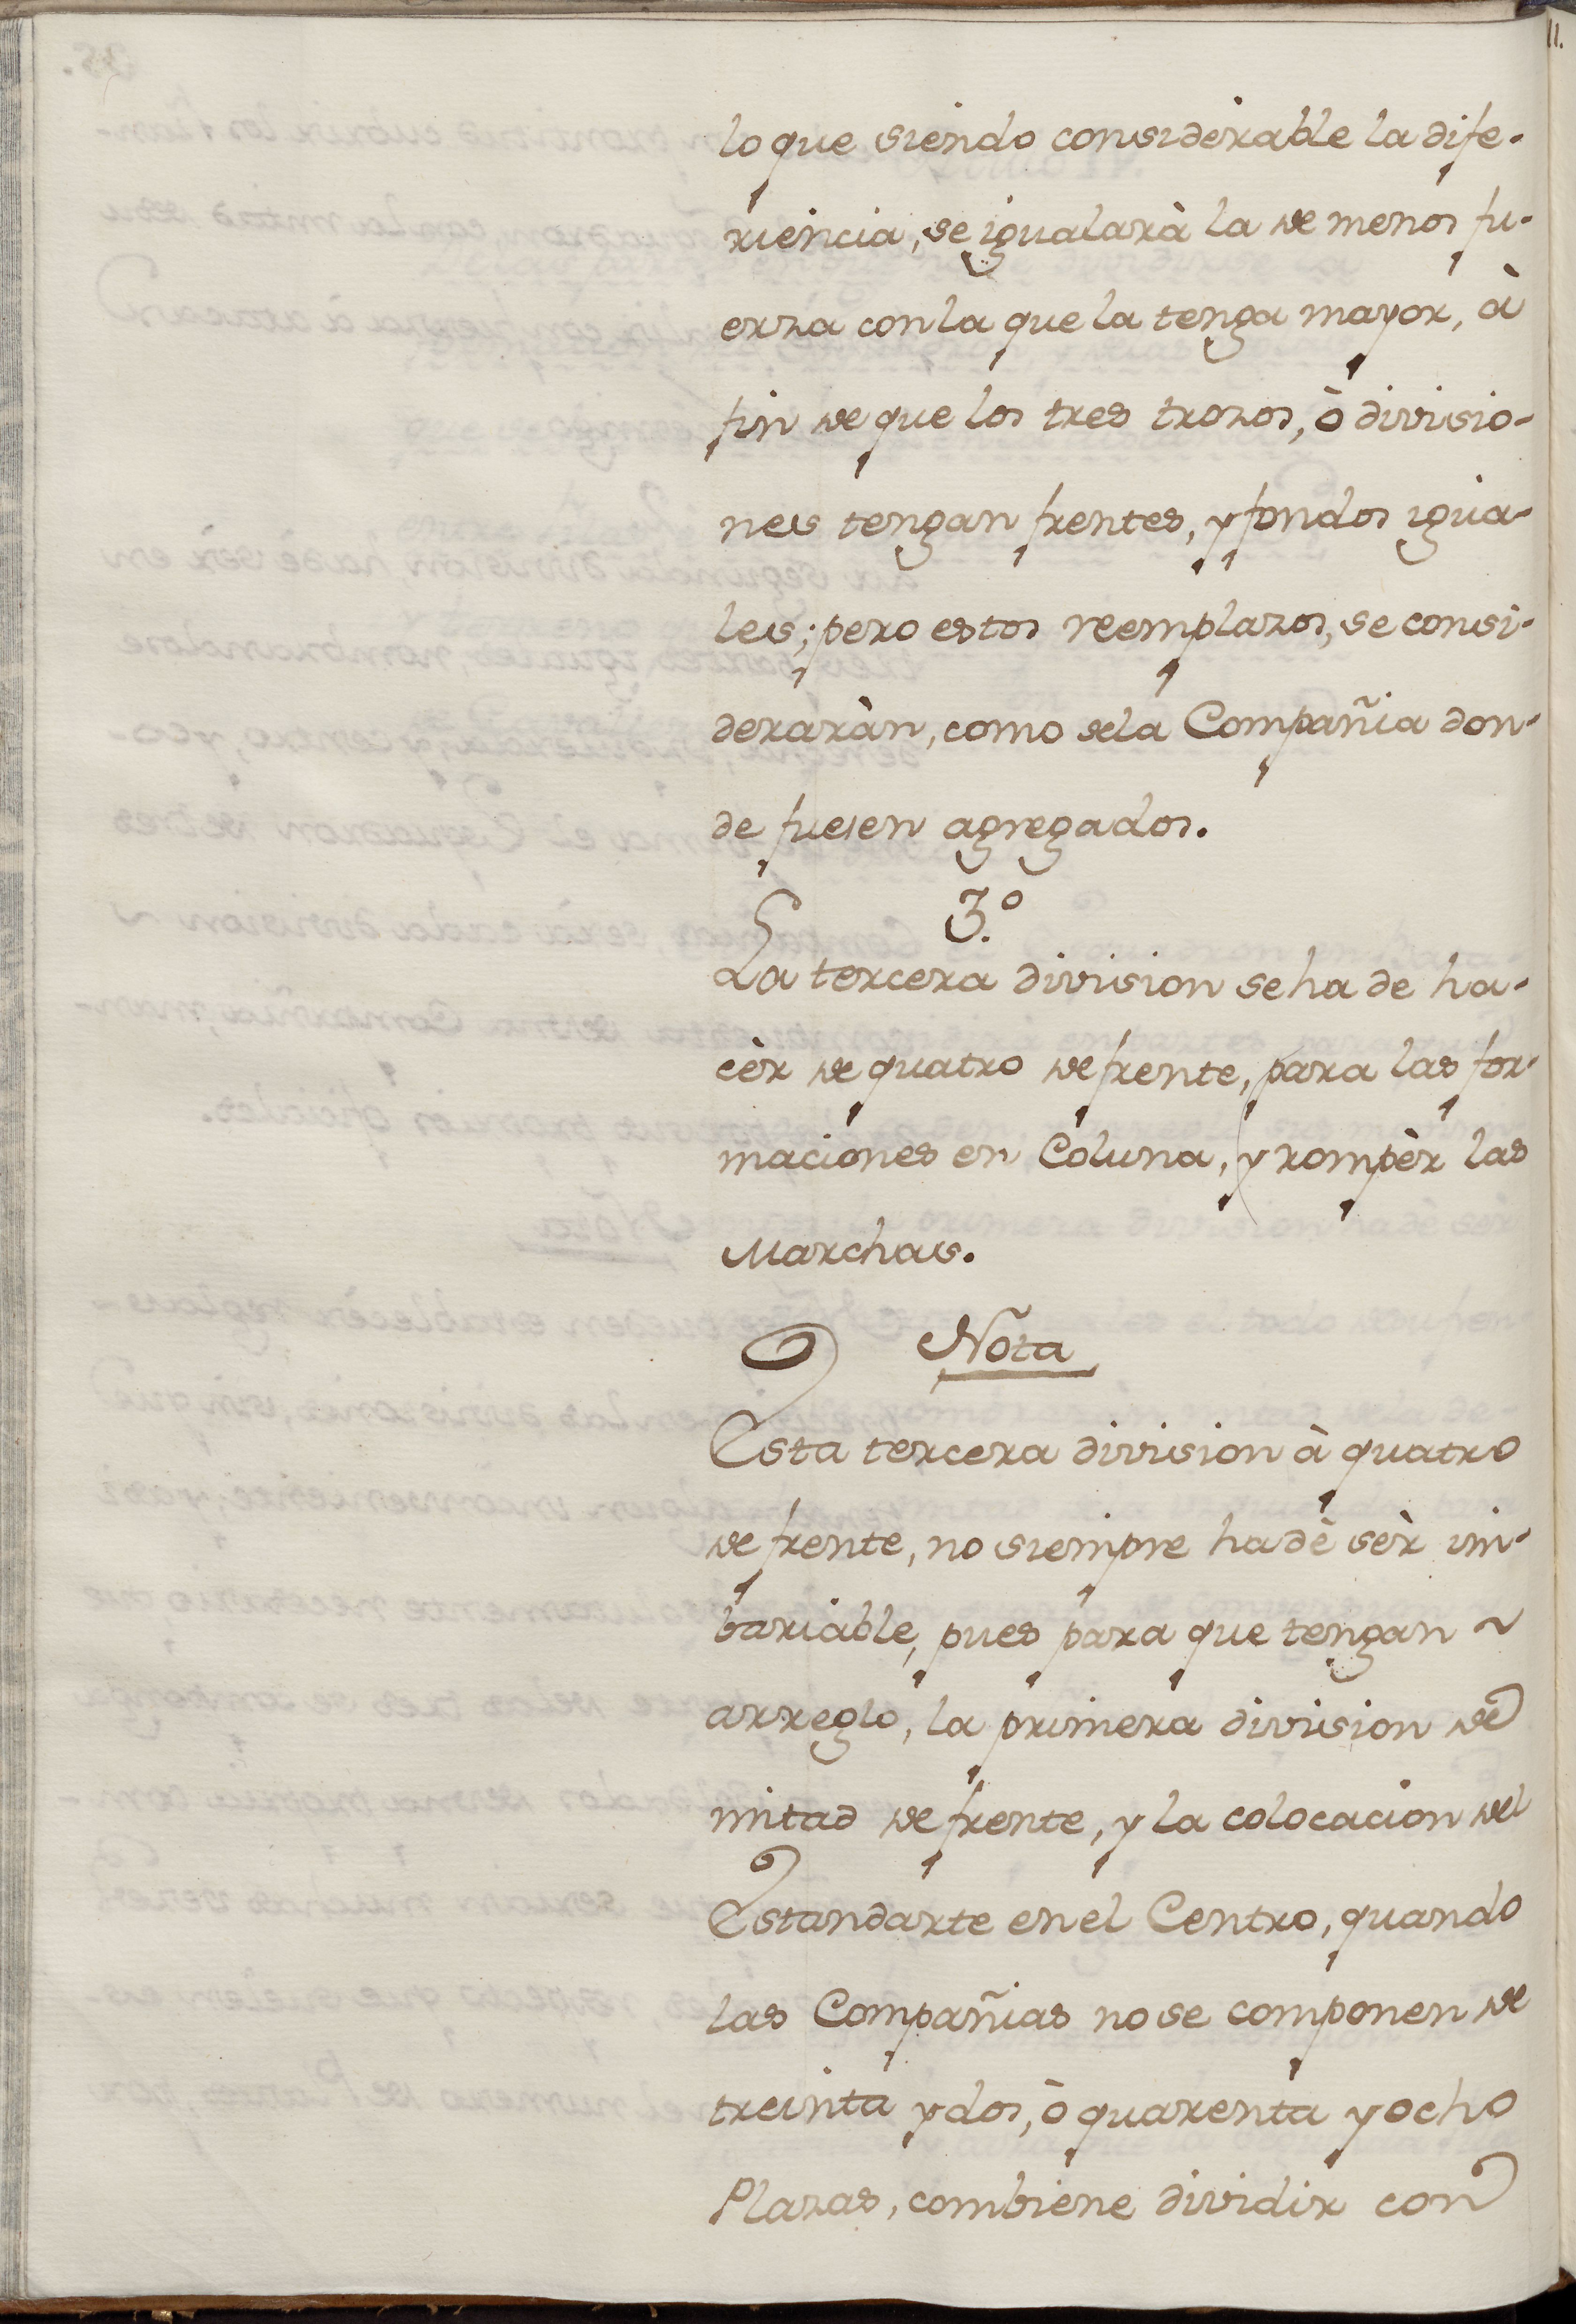 lo que siendo considerable la dife-
riencia, se igualarà la de menos fu-
erza con la que la tenga mayor, à
fin de que los tres trozos, ò divisio-
nes tengan frentes, y fondos igua-
les; pero estos reemplazos, se consi-
deraràn, como dela Compañia don-
de fuesen agregados.
3.º
La tercera division se ha de ha-
cèr de quatro de frente, para las for-
maciones en Coluna, y rompèr las
Marchas.
Nota
Esta tercera division à quatro
de frente, no siempre ha dè sèr in-
bariable, pues para que tengan ~
arreglo, la primera division de
mitad de frente, y la colocacion del
Estandarte en el Centro, quando
las Compañias no se componen de
treinta y dos, ò quarenta y ocho
Plazas, combiene dividir con